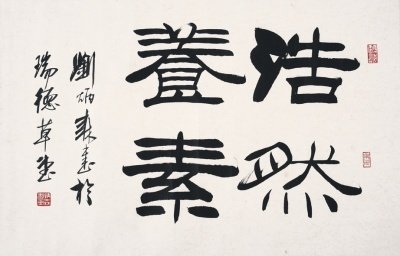 浩然
養素
劉炳森書於
瑞德草堂